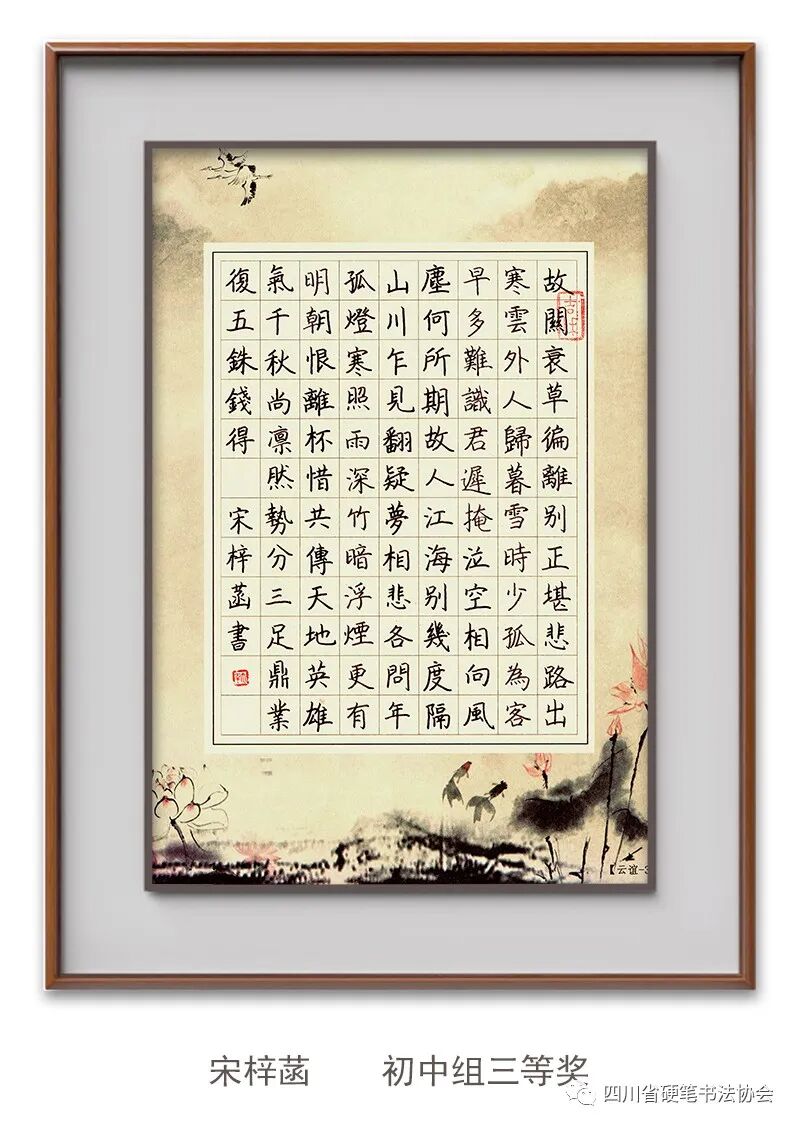 故關衰草徧離別正堪悲路出
寒雲外人歸暮雪時少孤為客
早多難識君遲掩泣空相向風
塵何所期故人江海別幾度隔
山川乍見翻疑夢相悲各問年
孤燈寒照雨深竹暗浮煙更有
明朝恨離杯惜共傳天地英雄
氣千秋尚凛然勢分三足鼎業
復五銖錢得 宋梓菡書
【云谊-3
宋梓菡 初中组三等奖
四川省硬笔书法协会